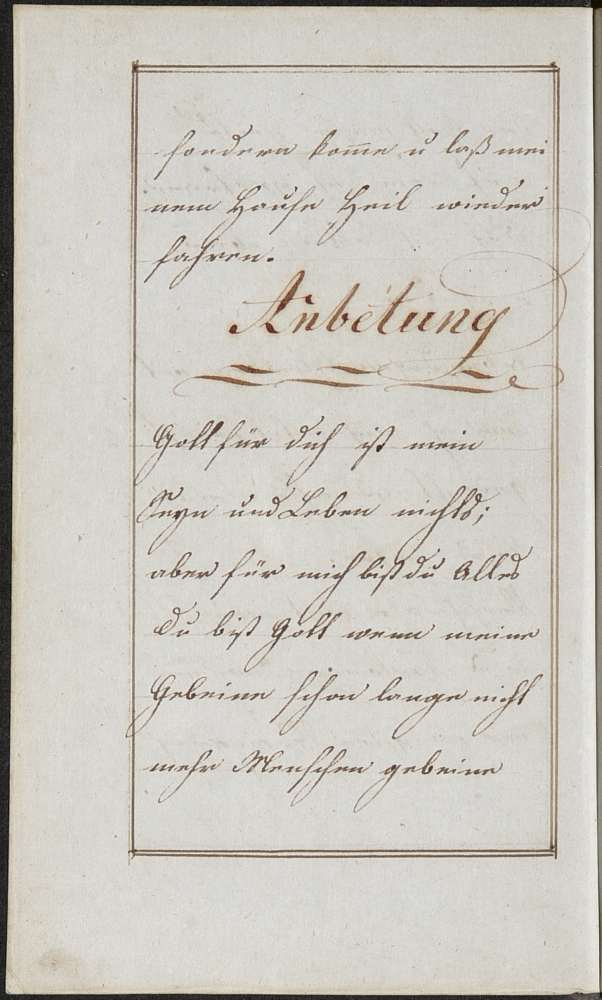 sondern kom̅e u laß mei
nem Hause Heil wieder
fahren.
Anbetung
Gott für dich ist mein
Seyn und Leben nichts;
aber für mich bist du Alles
Du bist Gott wenn meine
Gebeine schon lange nicht
mehr Menschen gebeine